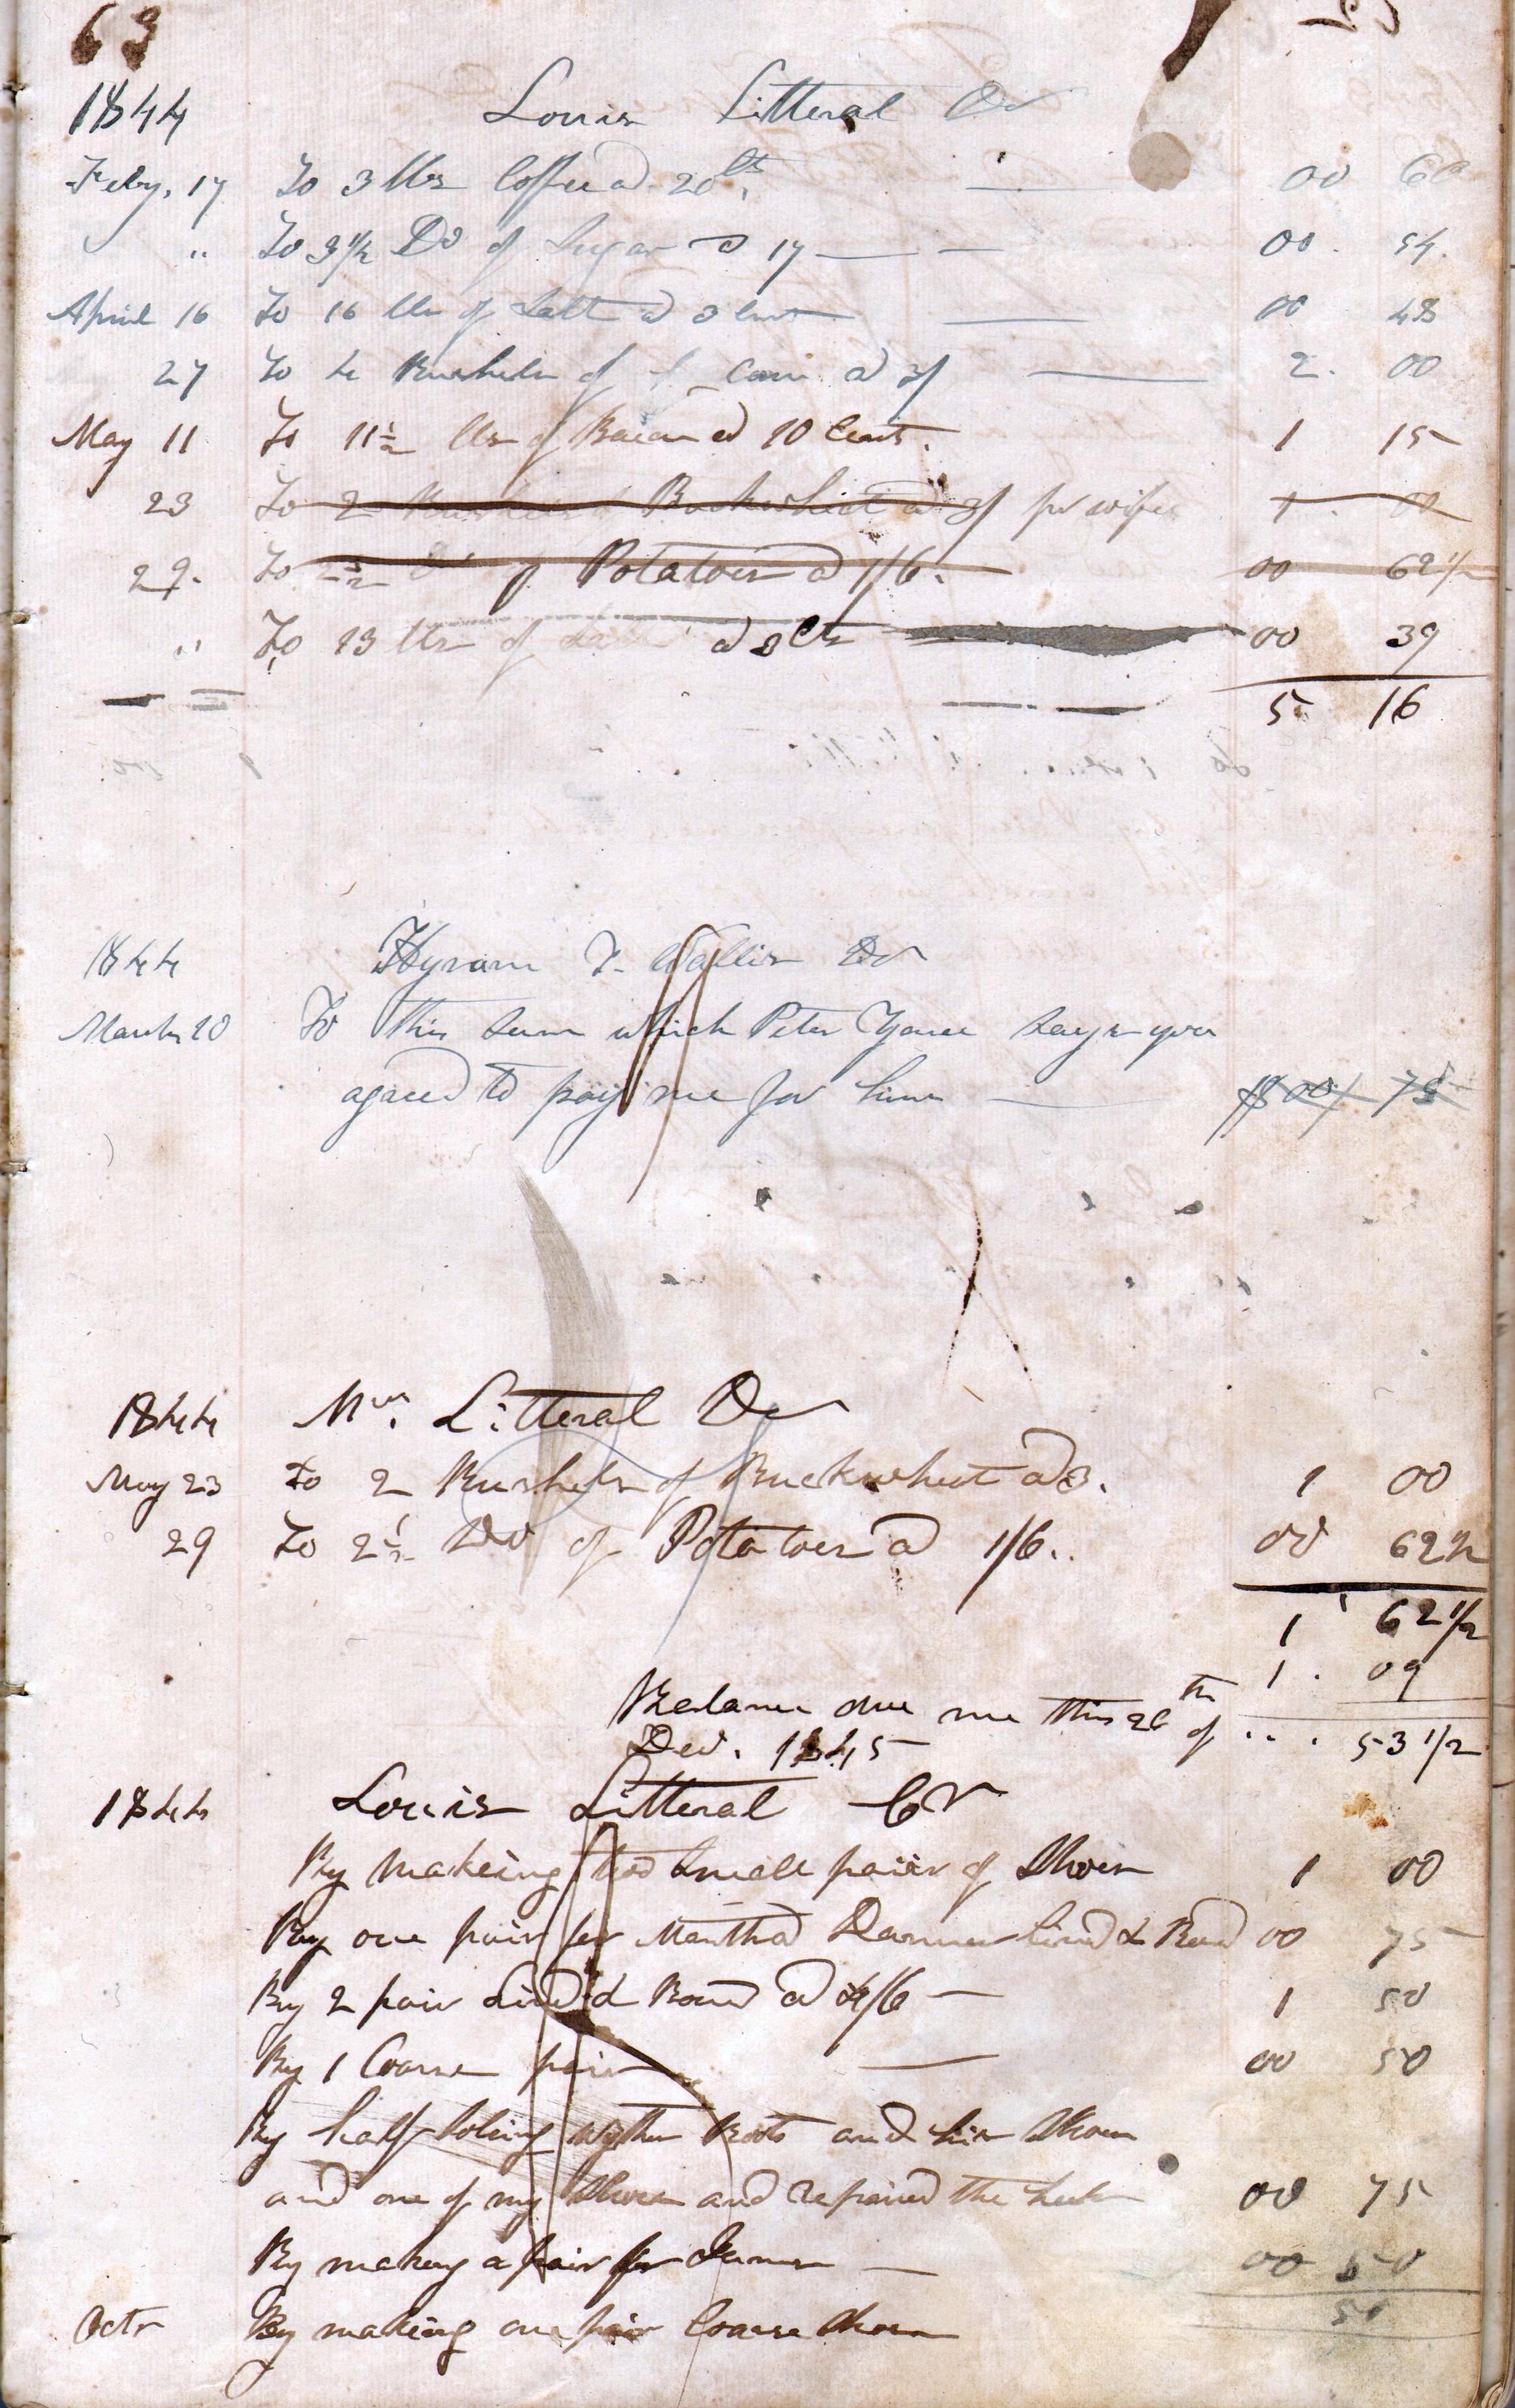 63
1844 Louis Litteral Dr
Feby. 17 To 3 lbs Coffee a 20 cts. 00 60
" To 3 1/2 Do of Sugar a 17 00. 54.
April 16 To 16 lbs of Salt a 3 cents 00 48
27 To 4 Bushels of Corn a 3/ 2. 00
May 11 To 11 1/2 lbs of Bacon a 10 Cents. 1 15
23 To 2 Bushels Buckwheat a 3/ pr wife 1. 00
29. To 2 1/2 Do of Potatoes a 1/6. 00 62 1/2
" To 13 lbs of Salt a 3 Cts 00 39
5 16
1844 Hyram T. Wallis Dr
March 20 To this sum which Peter Yance says you
agreed to pay me for him $ 00 75
1844 Mrs. Litteral Dr
May 23 To 2 Bushels of Buckwheat a 3. 1 00
29 To 2 1/2 Do of Potatoes a 1/6.. 00 62 1/2
1 62 1/2
1. 09
Balance due me this 26th of ... 53 1/2
Dec. 1845
1844 Louis Litteral Cr
By makeing two small pairs of Shoes 1 00
By one pair for Martha Danner lined & Bound 00 75
By 2 pair Lined & Bound a 4/6 1 50
By 1 Coarse pair 00 50
By half soling Boots and his Shoes
and one of my Shoes and repaired the heels 00 75
By making a pair for James 00 50
50
Octr By making one pair Coarse Shoes